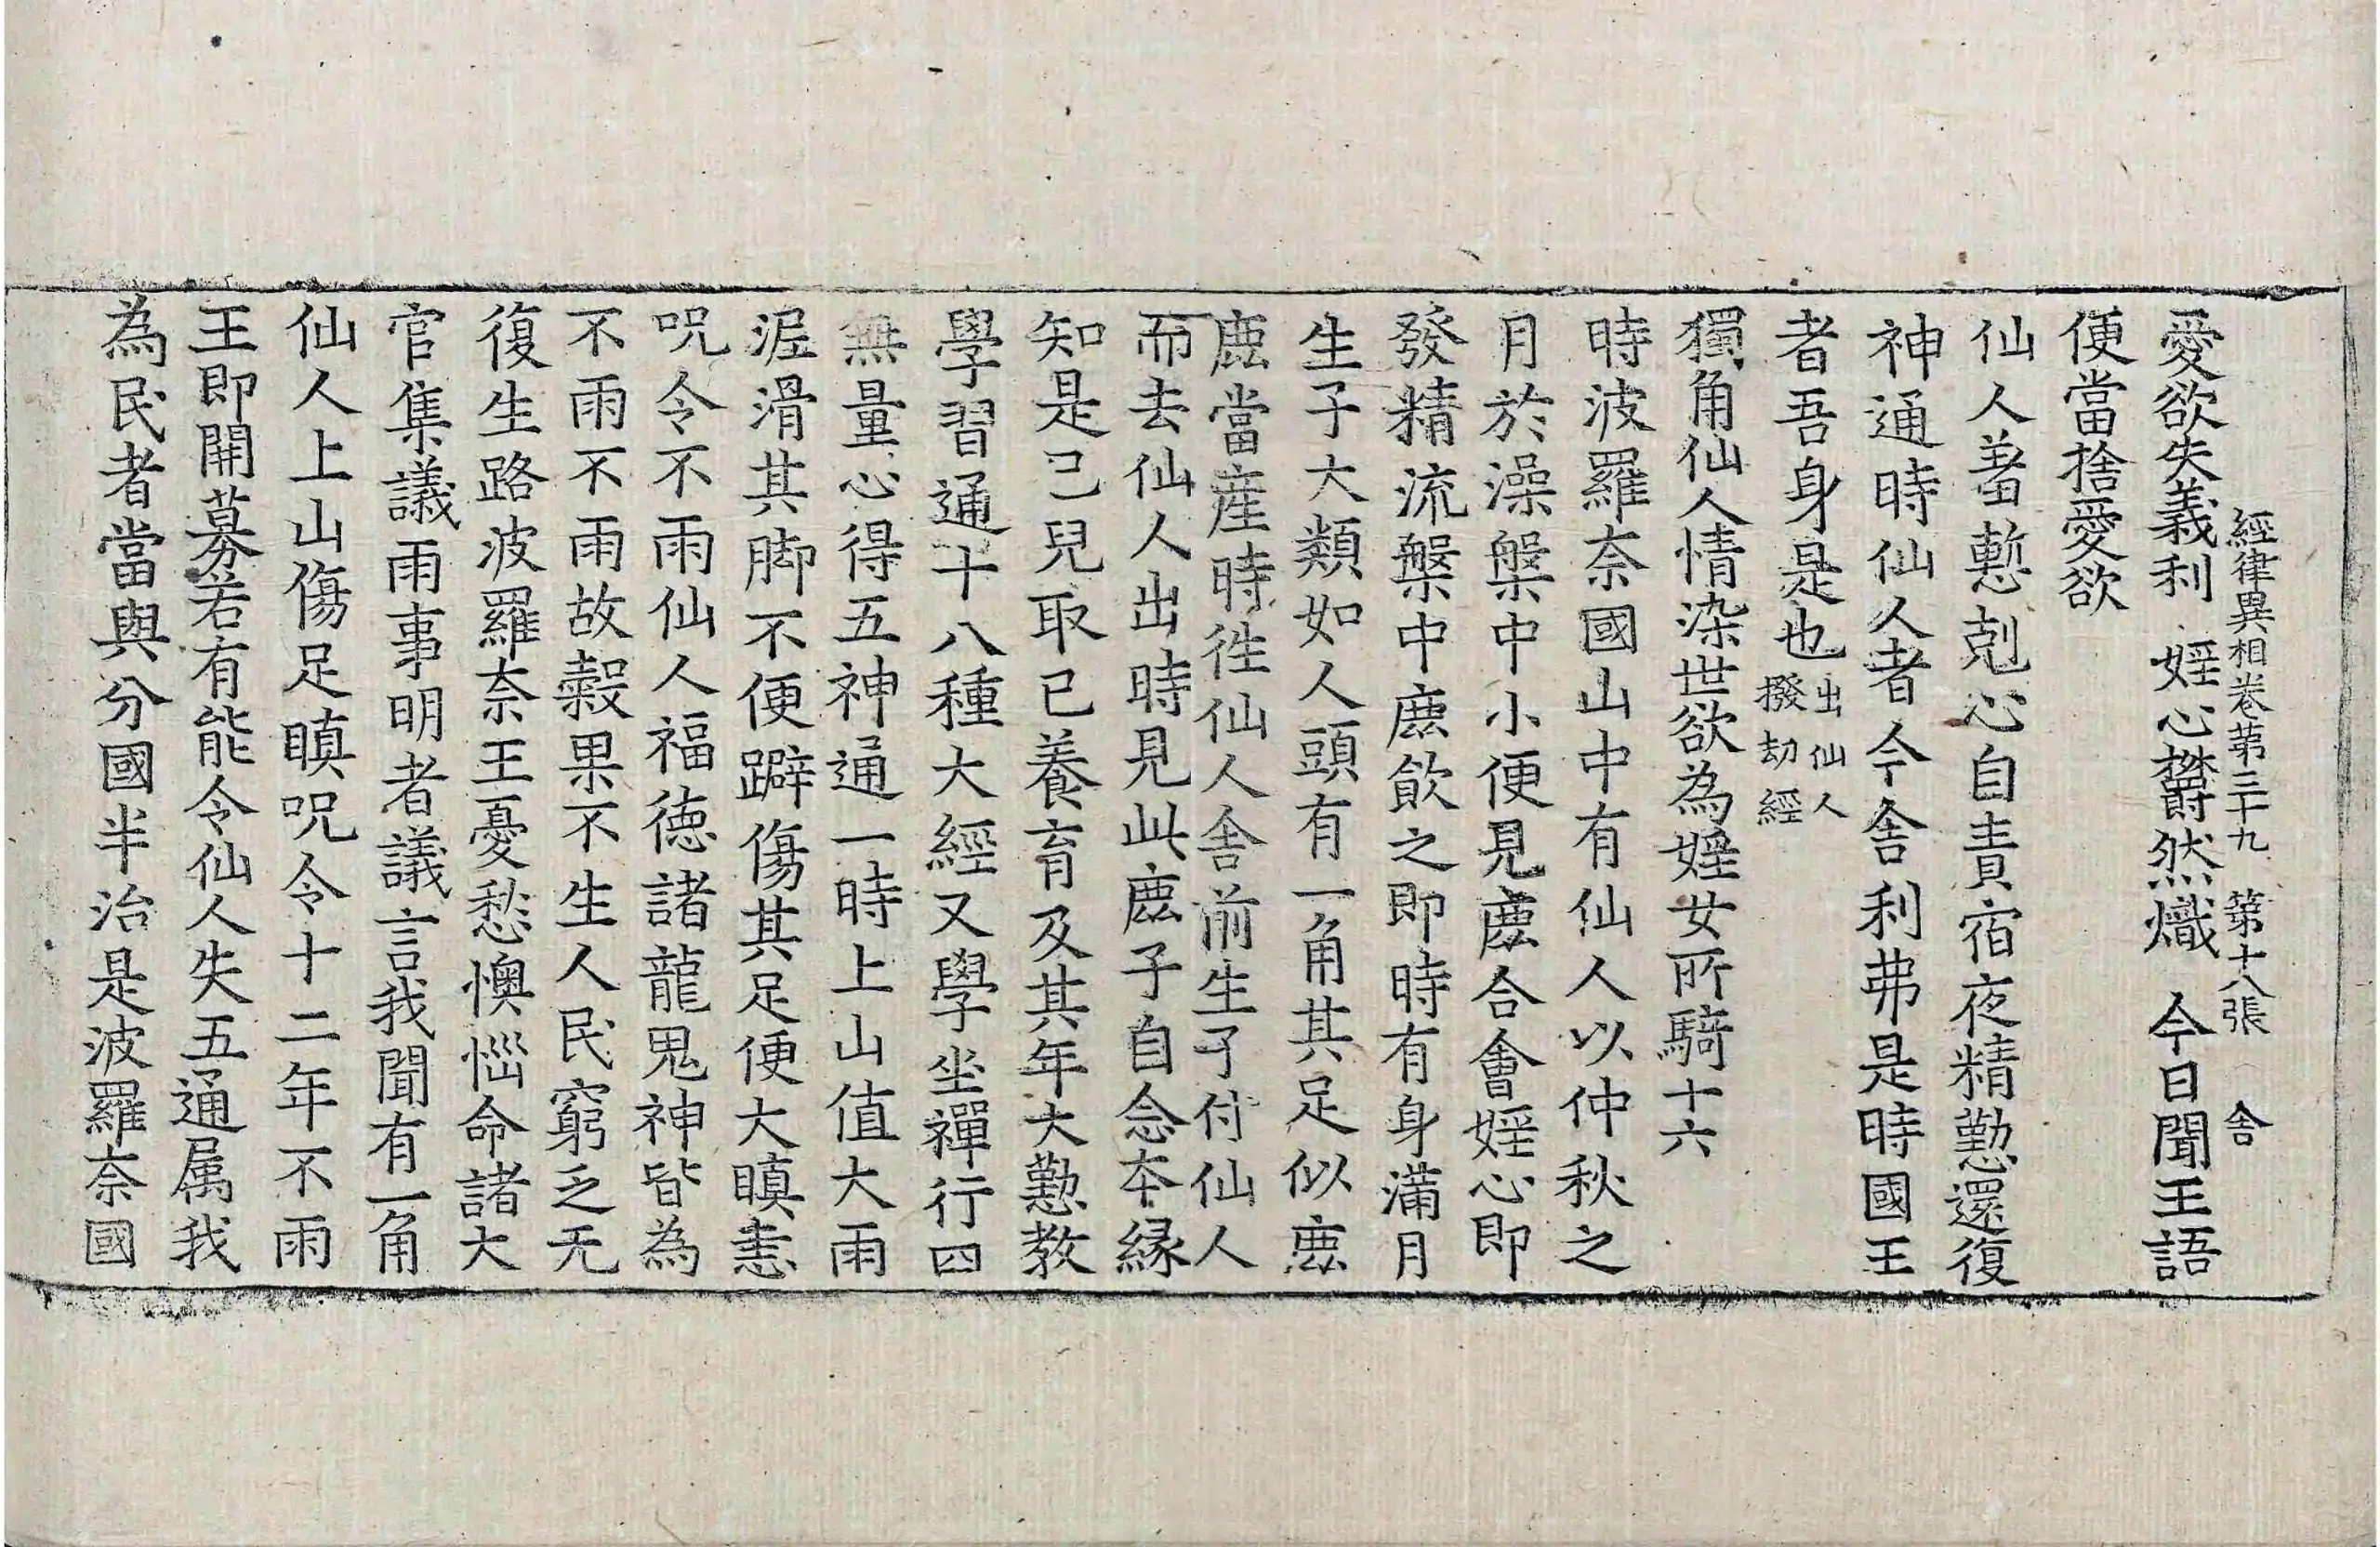 經律異相卷第三十九　第十八張　舎
愛欲失義利　婬心欝然熾　今日聞王語
便當捨愛欲
仙人羞慙剋心自責宿夜精懃還復
神通時仙人者今舎利弗是時國王
者吾身是也出仙人撥劫經
獨角仙人情染世欲為婬女所騎十六
時波羅奈國山中有仙人以仲秋之
月於澡槃中小便見鹿合會婬心即
發精流槃中鹿飲之即時有身滿月
生子大類如人頭有一角其足似鹿
鹿當産時徃仙人舎前生子付仙人
而去仙人出時見此鹿子自念本縁
知是己兒取已養育及其年大懃教
學習通十八種大經又學坐禪行四
無量心得五神通一時上山值大雨
泥滑其脚不便躃傷其足便大瞋恚
呪令不雨仙人福德諸龍鬼神皆為
不雨不雨故穀果不生人民窮乏无
復生路波羅奈王憂愁懊惱命諸大
官集議雨事明者議言我聞有一角
仙人上山傷足瞋呪令十二年不雨
王即開募若有能令仙人失五通属我
為民者當與分國半治是波羅奈國